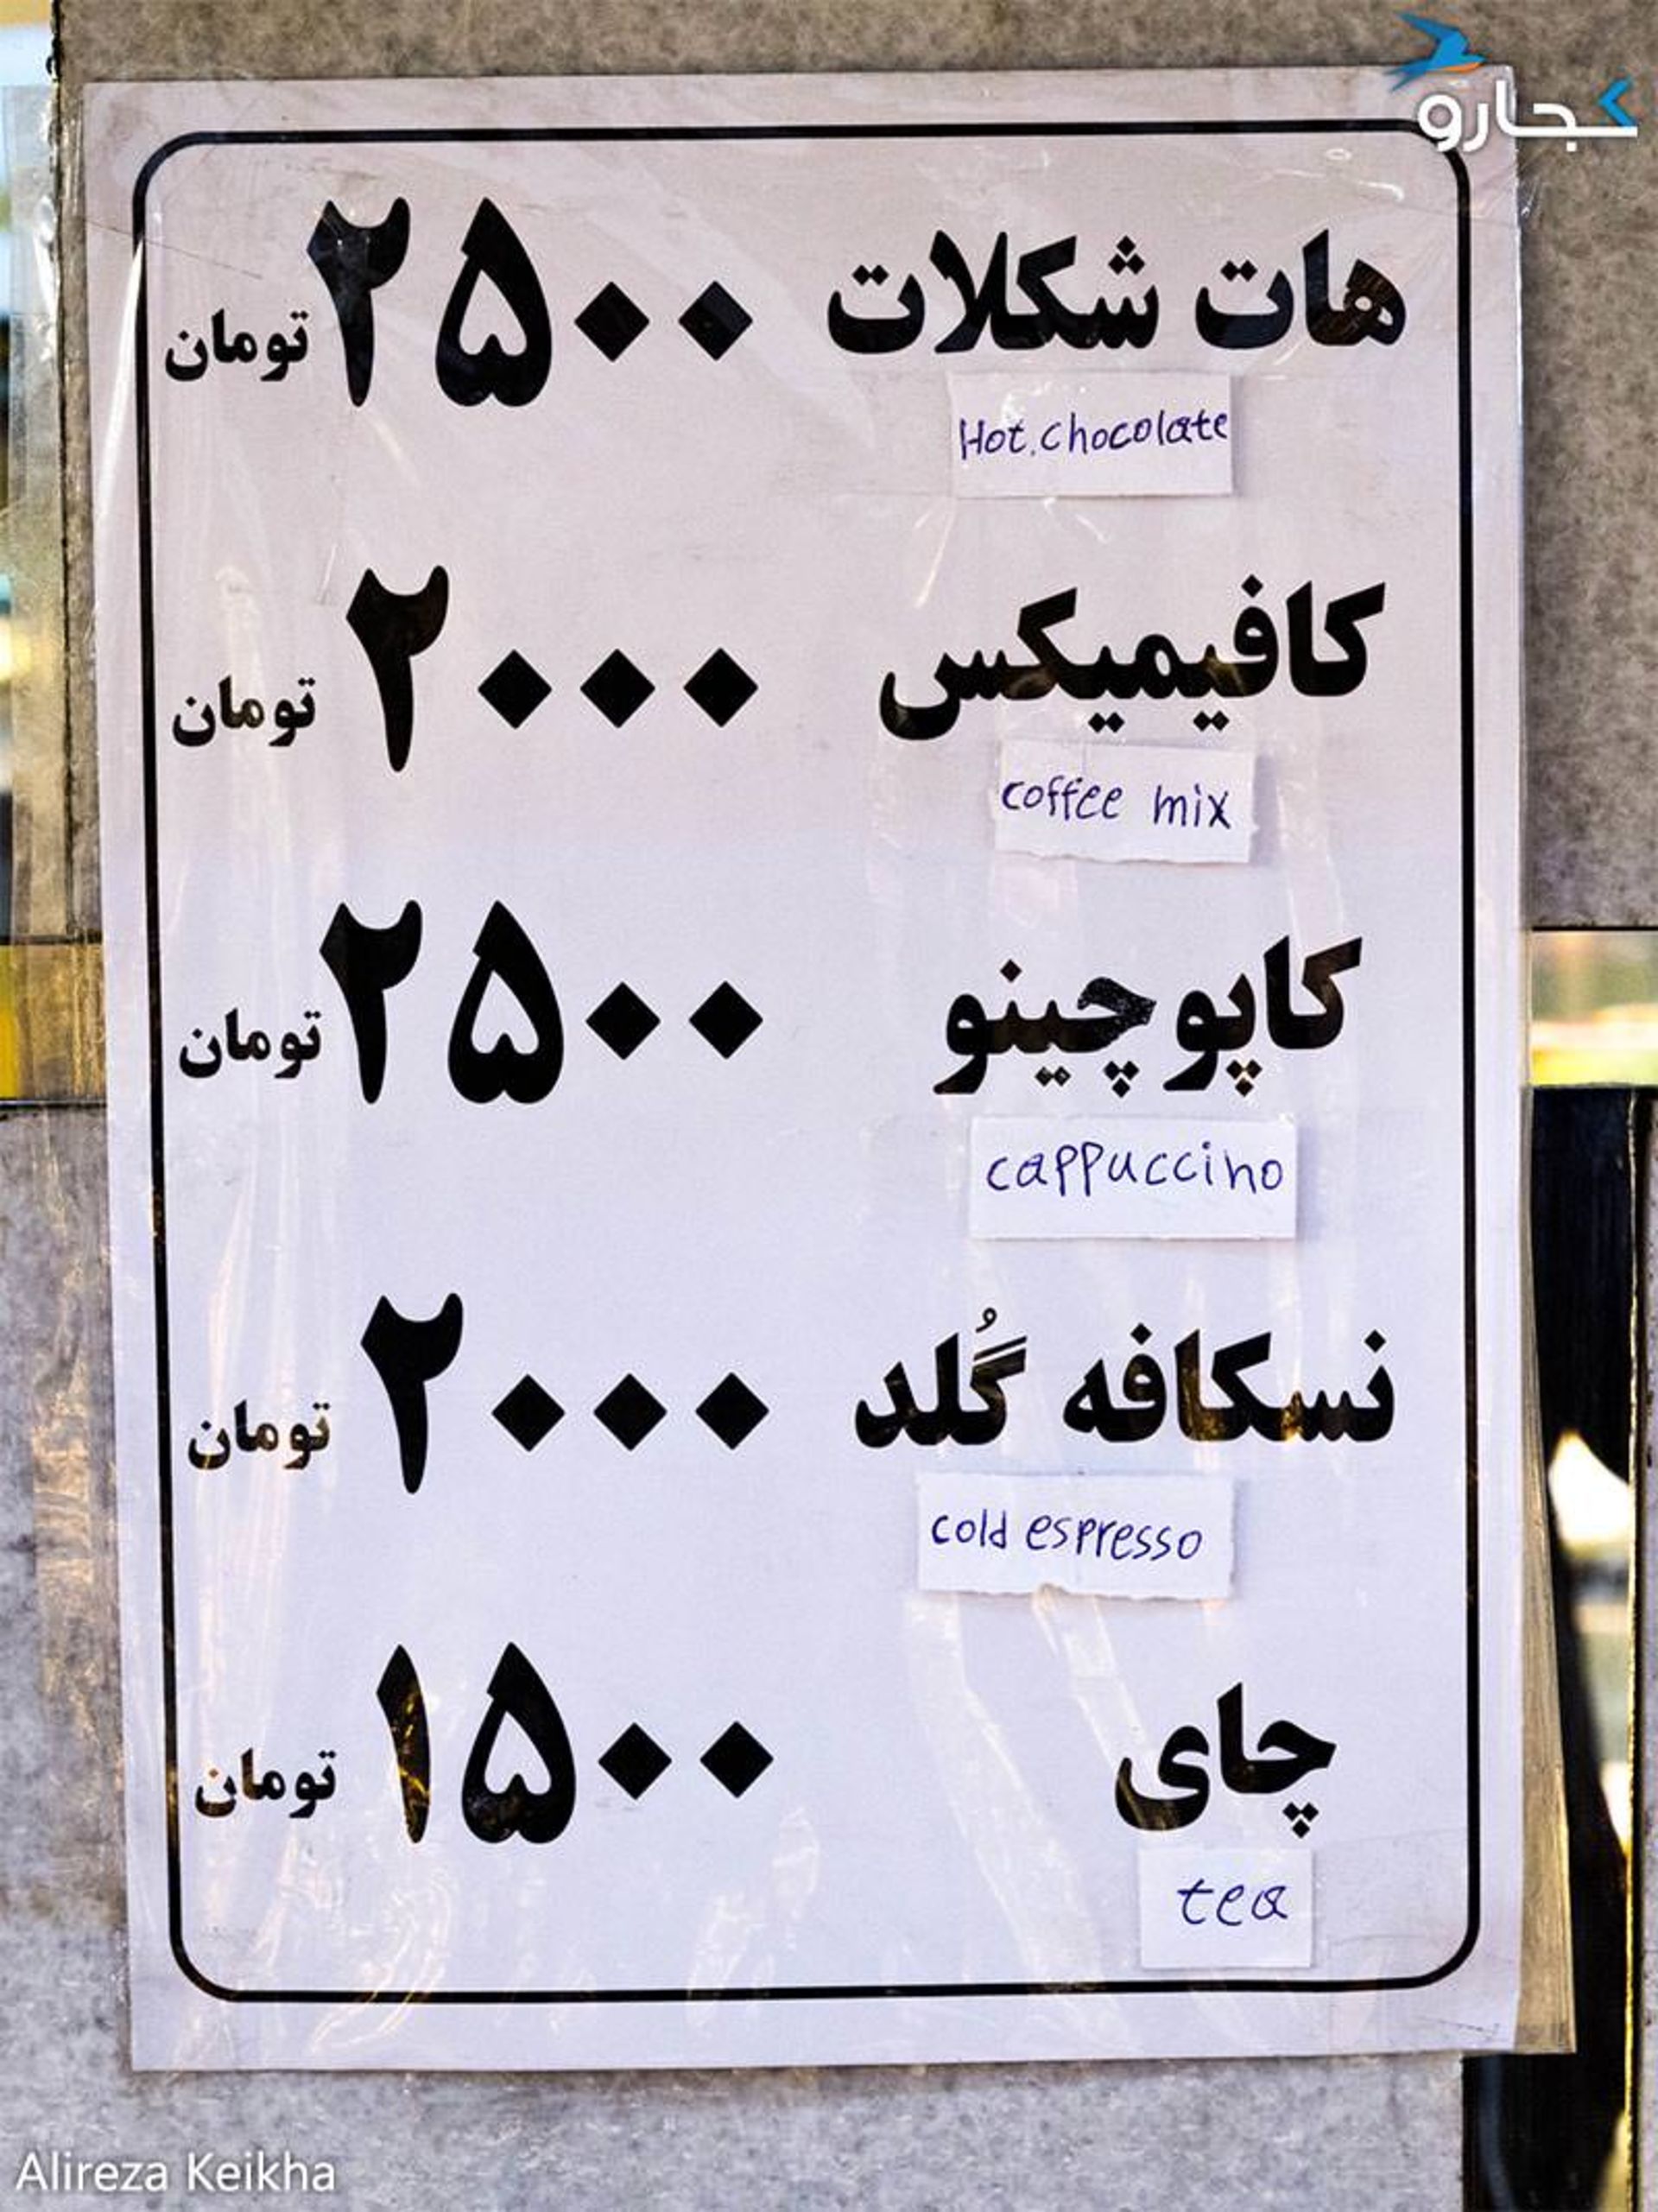 کجارو
هات شکلات ۲۵۰۰ تومان
Hot.chocolate
کافیمیکس ۲۰۰۰ تومان
coffee mix
کاپوچینو ۲۵۰۰ تومان
cappuccino
نسکافه گُلد ۲۰۰۰ تومان
cold espresso
چای ۱۵۰۰ تومان
tea
Alireza Keikha